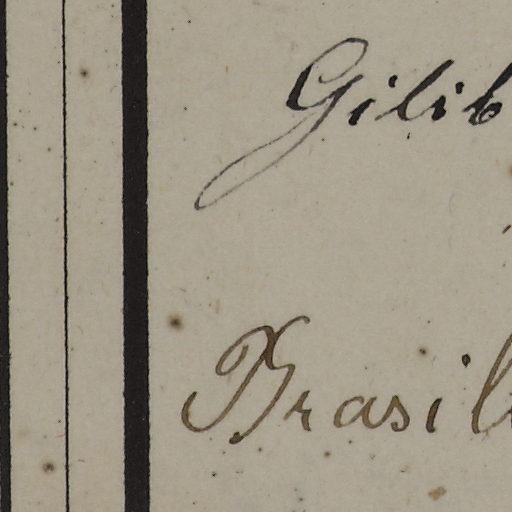 Gilib
Brasil